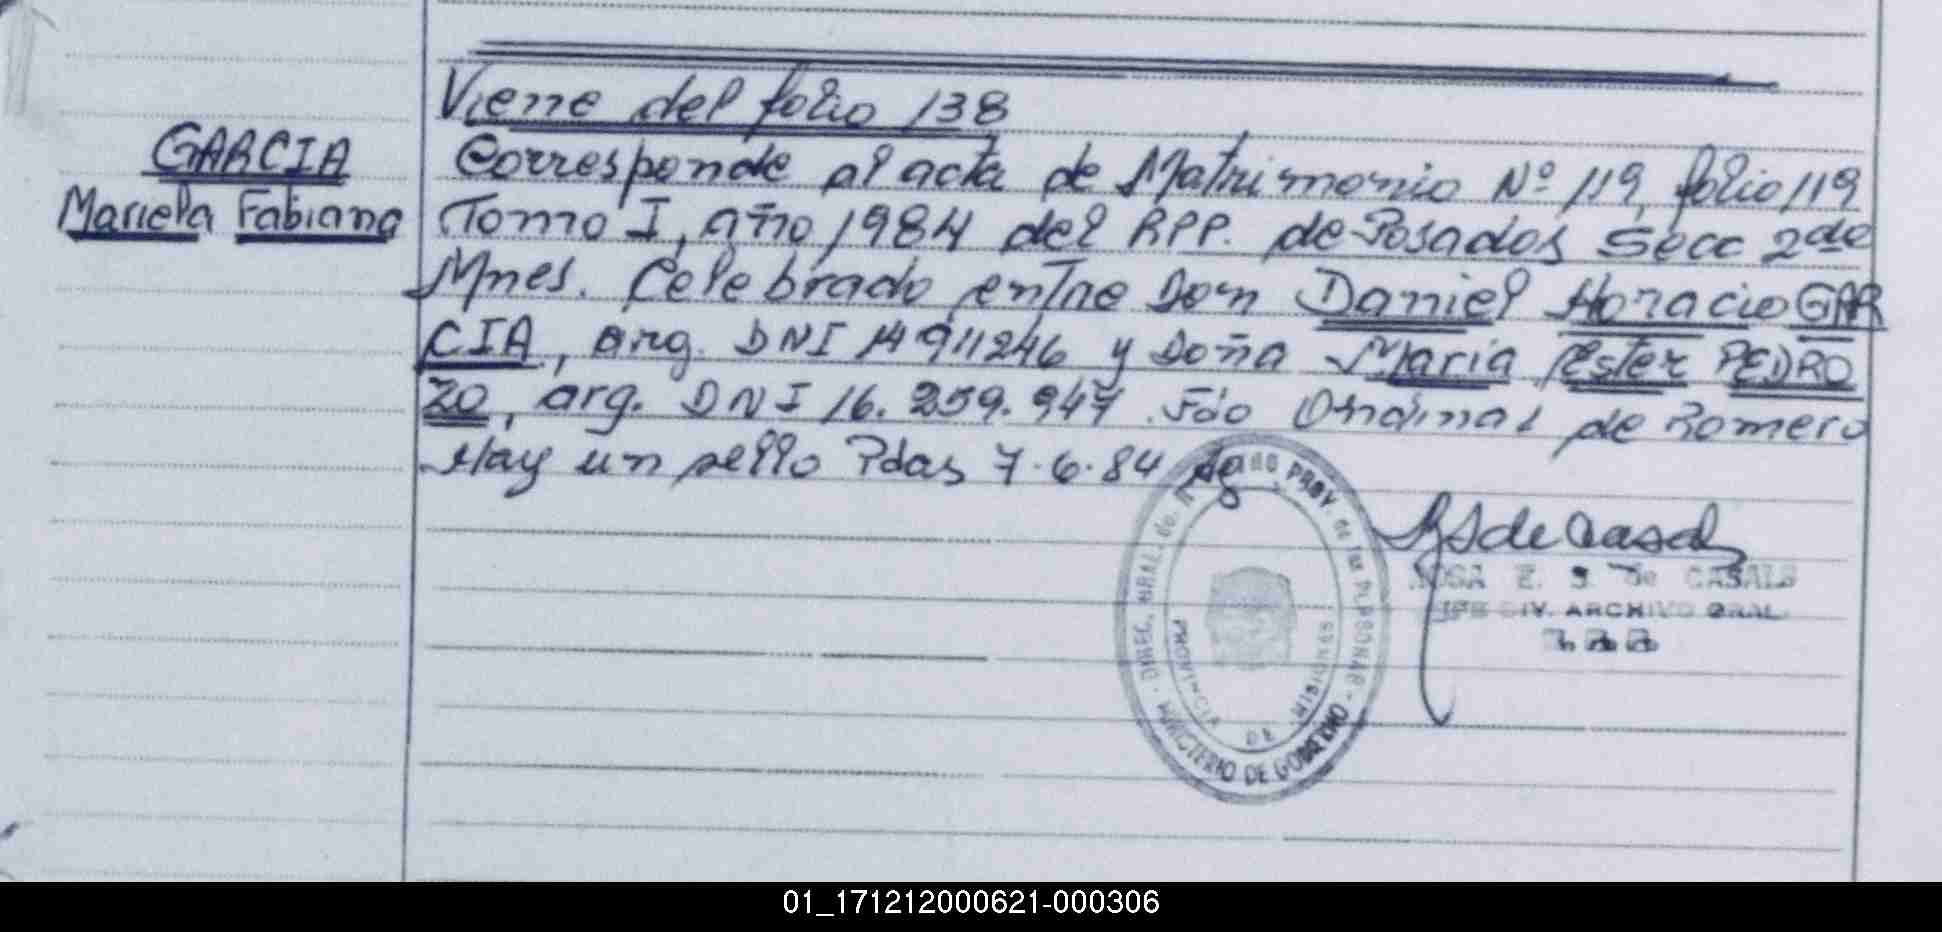 Viene del folio 138
GARCIA
Mariela Fabiana
Corresponde al acta de Matrimonio Nº 119, folio 119
Tomo I, año 1984 del RPP. de Posadas Secc 2ª de
Mnes. Celebrado entre Don Daniel Horacio GAR
CIA, arg. DNI 14911246 y Doña Maria Ester PEDRO
ZO, arg. DNI 16.259.947. Fdo Ondina L de Romero
Hay un sello Pdas 7.6.84
DIREC. GRAL. de PROV. de las PERSONAS
MINISTERIO DE GOBIERNO
PROVINCIA DE MISIONES
ROSA E. S. de CASALS
JEFE DIV. ARCHIVO GRAL
01_171212000621-000306